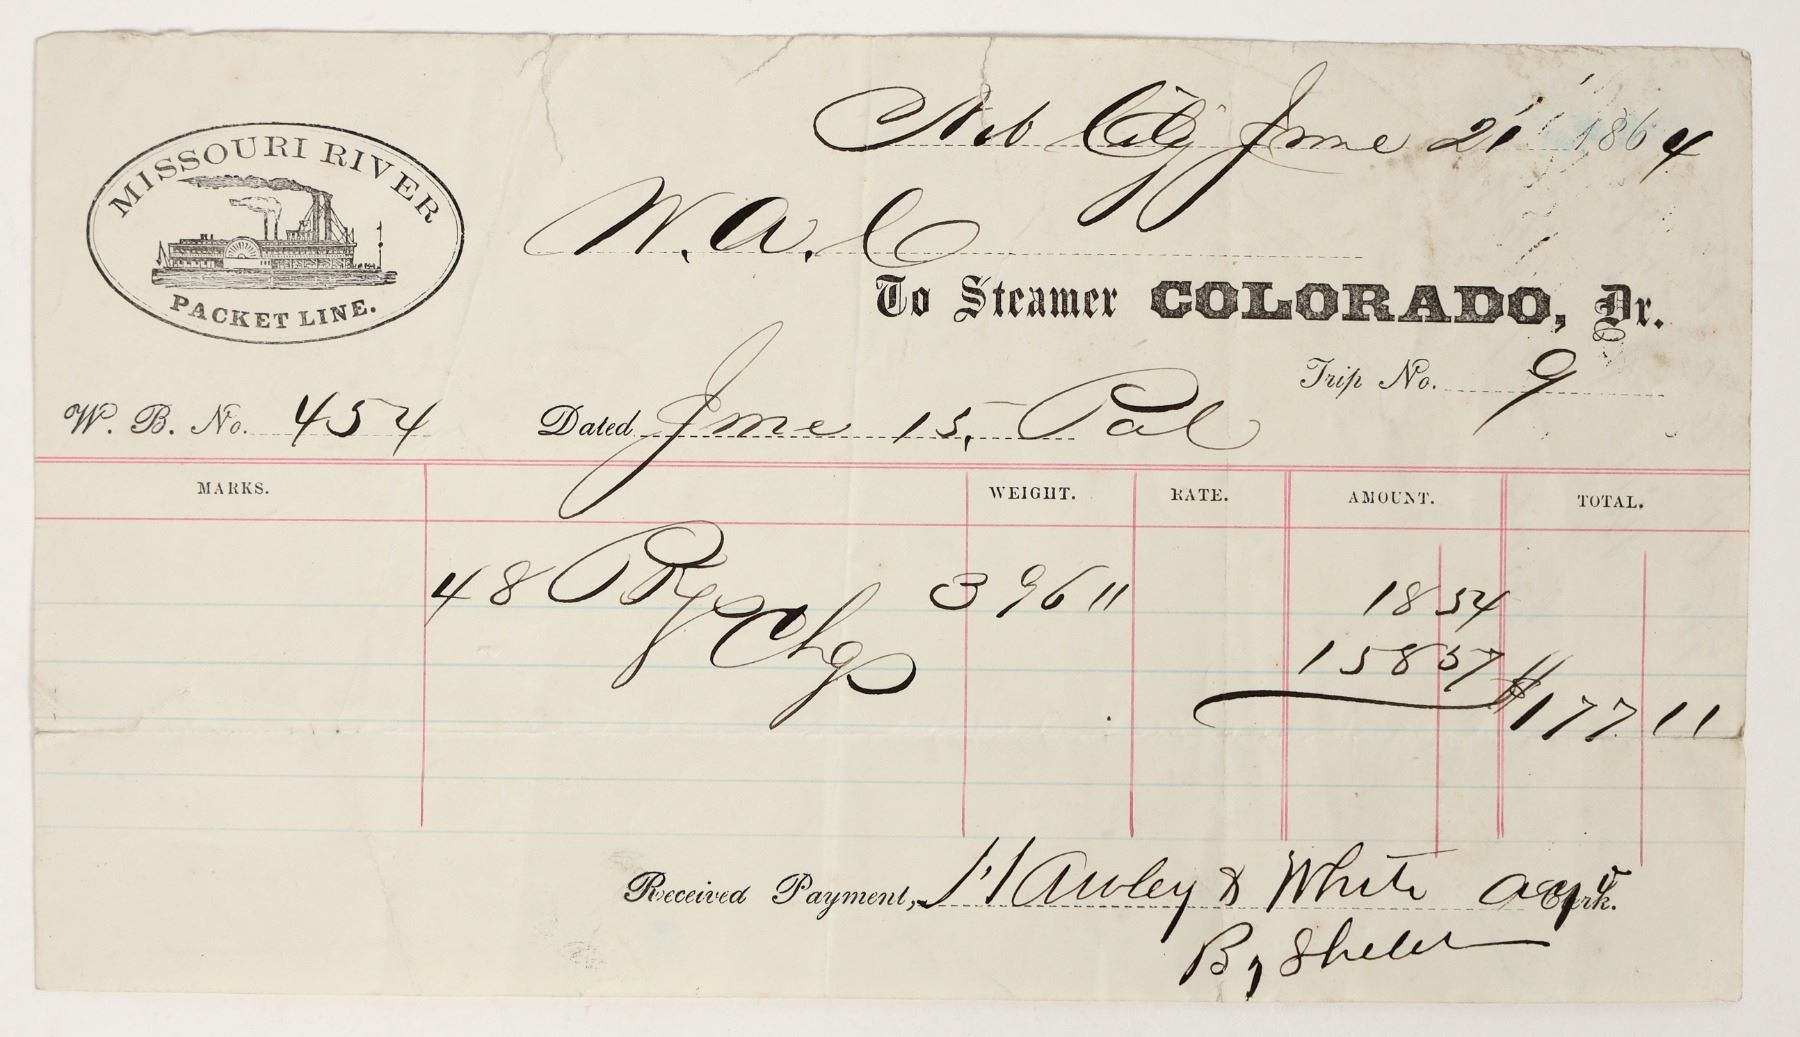 MISSOURI RIVER
PACKET LINE.
Neb City June 21 1864
W. A. C
To Steamer COLORADO, Dr.
Trip No. 9
W. B. No. 454 Dated June 15,
MARKS. WEIGHT. RATE. AMOUNT. TOTAL.
48 Pkgs 3961 18 54
Chgs 158 57
$177 11
Received Payment, Hawley & White Clerk.
By